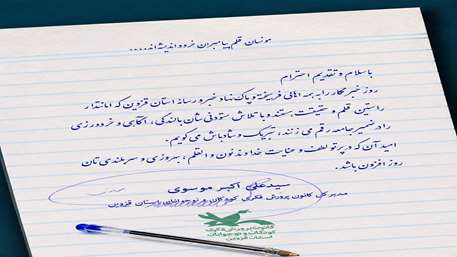 مونسان قلم پیامبران خرد و اندیشه‌اند....
با سلام و تقدیم احترام
روز خبرنگار را به همه اهالی فرهیخته و پاک نهاد خبر و رسانه استان قزوین که امانتدار
راستین قلم و حقیقت هستند و با تلاش ستودنی‌شان بالندگی، آگاهی و خردورزی
را در ضمیر جامعه رقم می زنند، تبریک و شادباش می گویم.
امید آن که در پرتو لطف و عنایت خداوند نون و القلم، بهروزی و سربلندی تان
روز افزون باشد.
سیدعلی اکبر موسوی
مدیر کل کانون پرورش فکری کودکان و نوجوانان استان قزوین
کانون پرورش فکری
کودکان و نوجوانان
استان قزوین